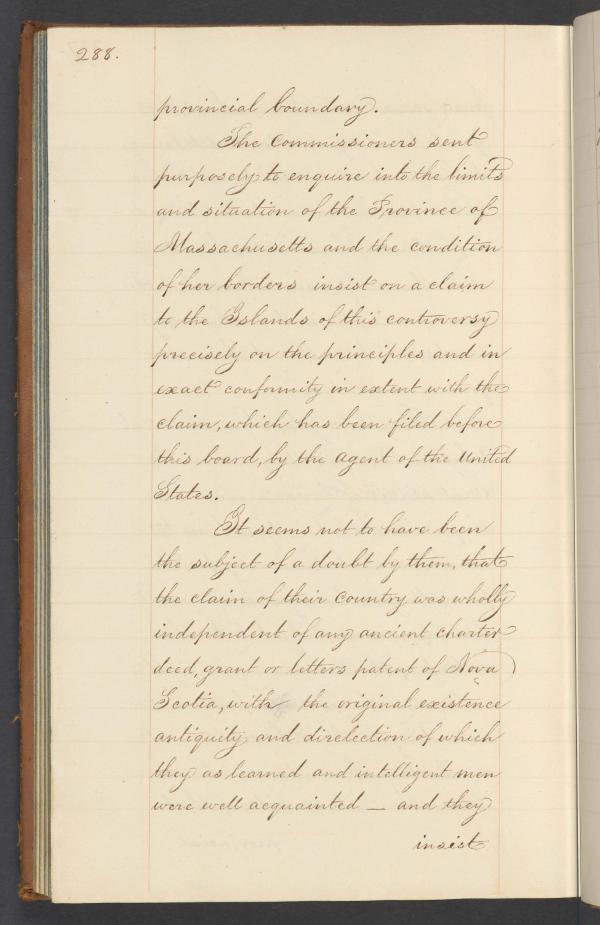 288.
provincial boundary.
The Commissioners sent
purposely to enquire into the limits
and situation of the Province of
Massachusetts and the condition
of her borders insist on a claim
to the Islands of this controversy
precisely on the principles and in
exact conformity in extent with the
claim, which has been filed before
this board, by the agent of the United
States.
It seems not to have been
the subject of a doubt by them, that
the claim of their Country was wholly
independent of any ancient charter
deed, grant or letters patent of Nova
Scotia, with the original existence
antiquity and direlection of which
they as learned and intelligent men
were well acquainted — and they
insist